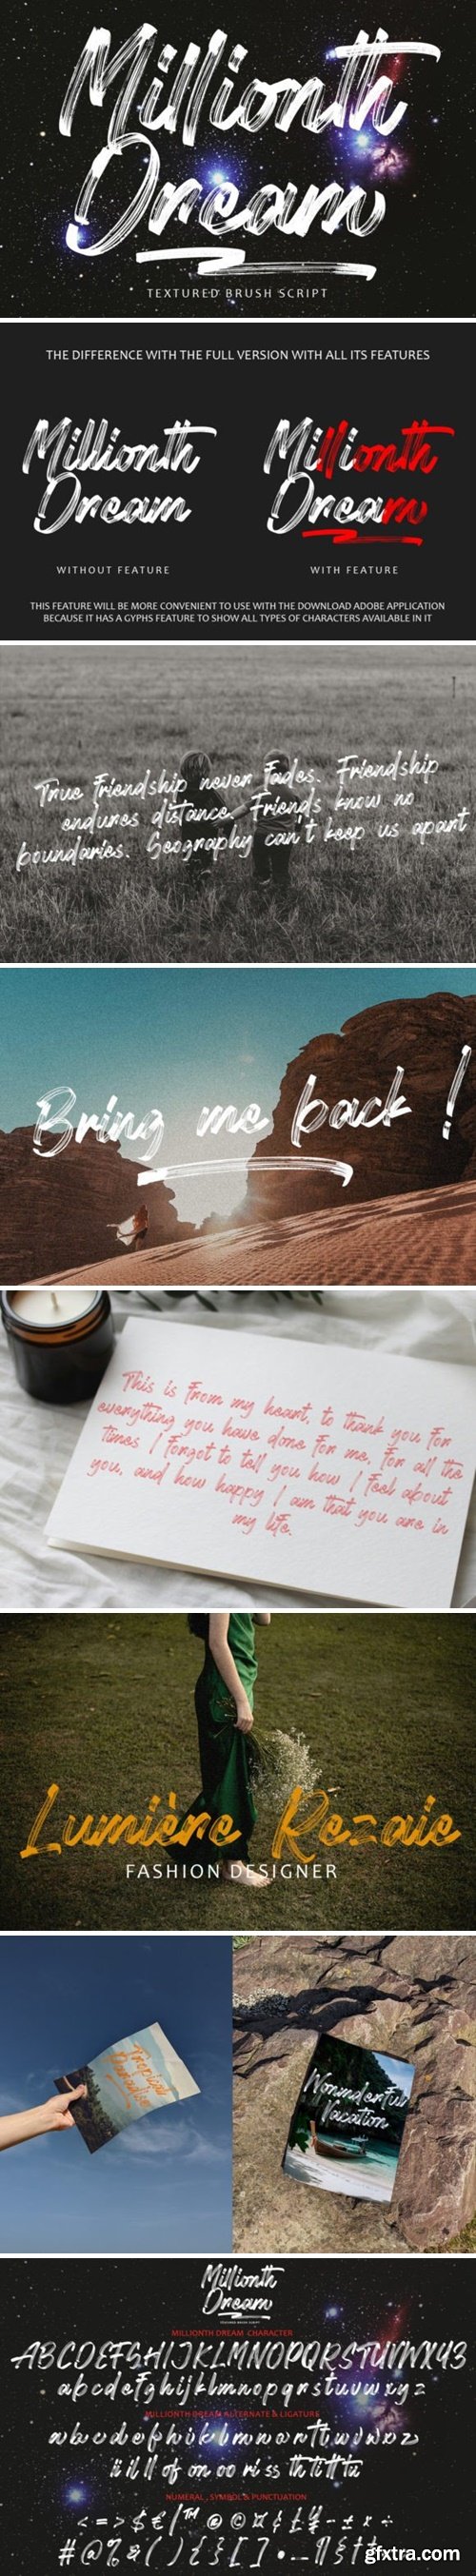 Millionth
Dream
TEXTURED BRUSH SCRIPT
THE DIFFERENCE WITH THE FULL VERSION WITH ALL ITS FEATURES
Millionth Millionth
Dream Dream
WITHOUT FEATURE WITH FEATURE
THIS FEATURE WILL BE MORE CONVENIENT TO USE WITH THE DOWNLOAD ADOBE APPLICATION
BECAUSE IT HAS A GYPHS FEATURE TO SHOW ALL TYPES OF CHARACTERS AVAILABLE IN IT
True Friendship never Fades. Friendship
endures distance. Friends know no
boundaries. Geography can't keep us apart
Bring me back !
This is From my heart, to thank you For
everything you have done For me, For all the
times I Forgot to tell you how I Feel about
you, and how happy I am that you are in
my life.
Lumière Rezaie
FASHION DESIGNER
Tropical
Paradise
Wonmderful
Vacation
Millionth
Dream
TEXTURED BRUSH SCRIPT
MILLIONTH DREAM CHARACTER
ABCDEFGHIJKLMNOPQRSTUVWXYZ
abcdefghijklmnopqrstuvwxyz
MILLIONTH DREAM ALTERNATE & LIGATURE
ii il ll of on oo ri ss th ti tt tu
NUMERAL , SYMBOL & PUNCTUATION
gfxtra.com